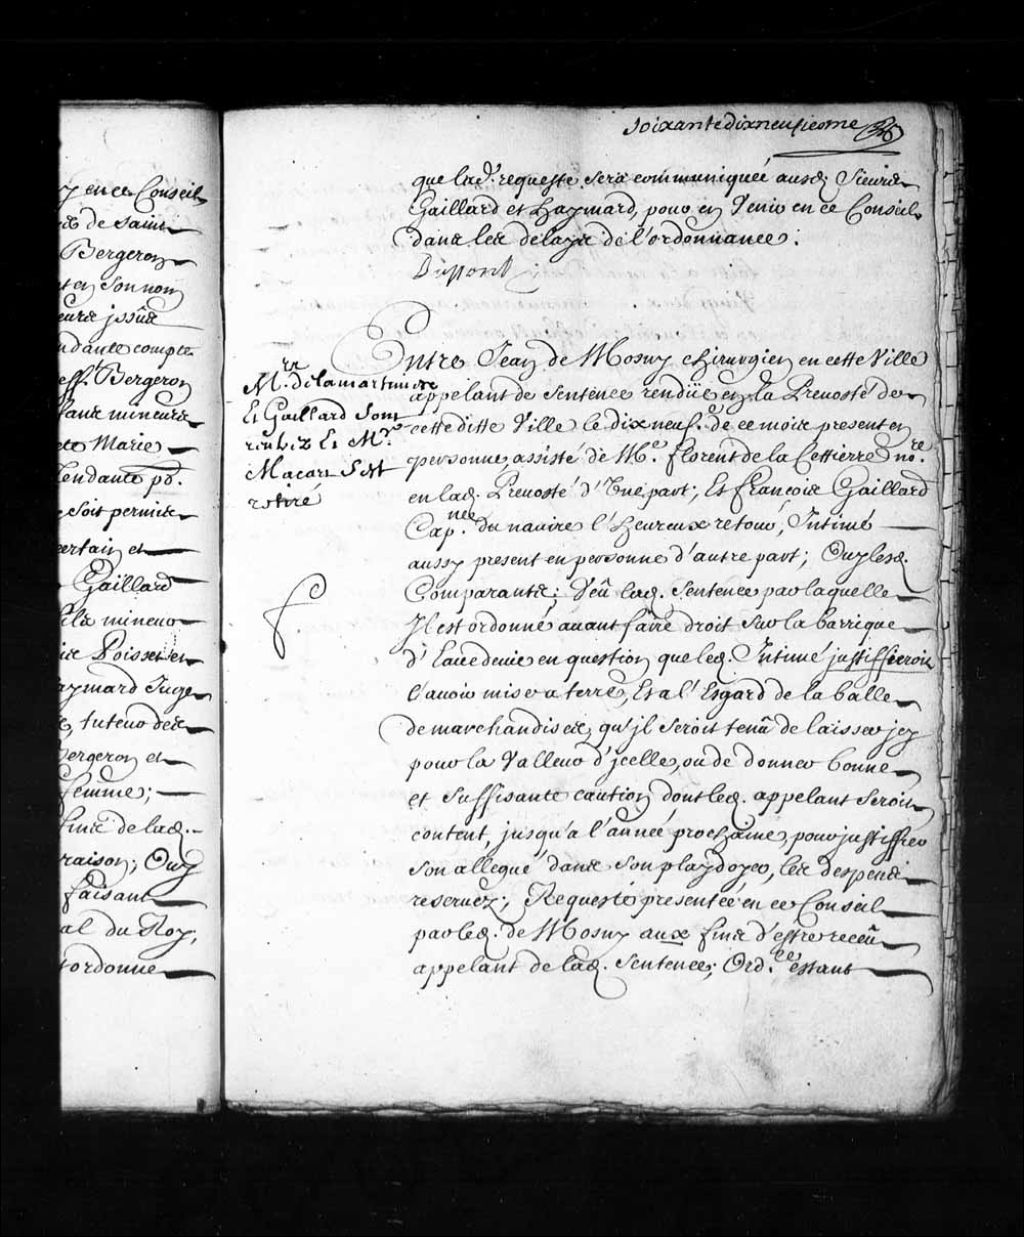 y en ce Conseil
de Saint
Bergeron
en son nom
issüe
ndante compte
eff. Bergeron
mineurs
Marie
fendante pd.
Soit permis
certain et
Gaillard
fils mineur
Poisset
aymard Juge
tuteur des
Bergeron et
femme;
fins de lad.
raison; Ouy
faisant
al du Roy,
ordonne
soixante dixneufiesme
que lad. requeste sera communiquée ausd. Sieurs
Gaillard et haymard, pour en Venir en ce Conseil
dans les delays de l'ordonnance.
Dupont
Mrs. delamartiniere
Et Gaillard Sont
rentrez Et Mr.
Macart S'est
retiré
Entre Jean de Mosny chirurgien en cette Ville
appelant de Sentence rendüe en la Prevosté de
cette ditte Ville le dix neufe. de ce mois present en
personne, assisté de Me. florent de la Cettierre nore.
en lad. Prevosté d'Une part; Et francois Gaillard
Capnee. du navire l'heureux retour, Intimé
aussy present en personne d'autre part; Ouy lesd.
Comparants; Veû lad. Sentence par laquelle
Il est ordonné avant faire droit Sur la barrique
d'Eaue de vie en question que led. Intimé justiffieroit
l'avoir mise a terre, Et a l'Esgard de la balle
de marchandises, qu'jl seroit tenû de laisser jcy
pour la Valleur d'jcelle, ou de donner bonne
et Suffisante caution dont led. appelant Seroit
content, jusqu'a l'année prochaine, pour justiffier
son allegué dans Son playdoyer, les despens
reservez; Requeste présentée en ce Conseil
par led. de Mosny aux fins d'estre receû
appelant de lad. Sentence; Ord.ce estant